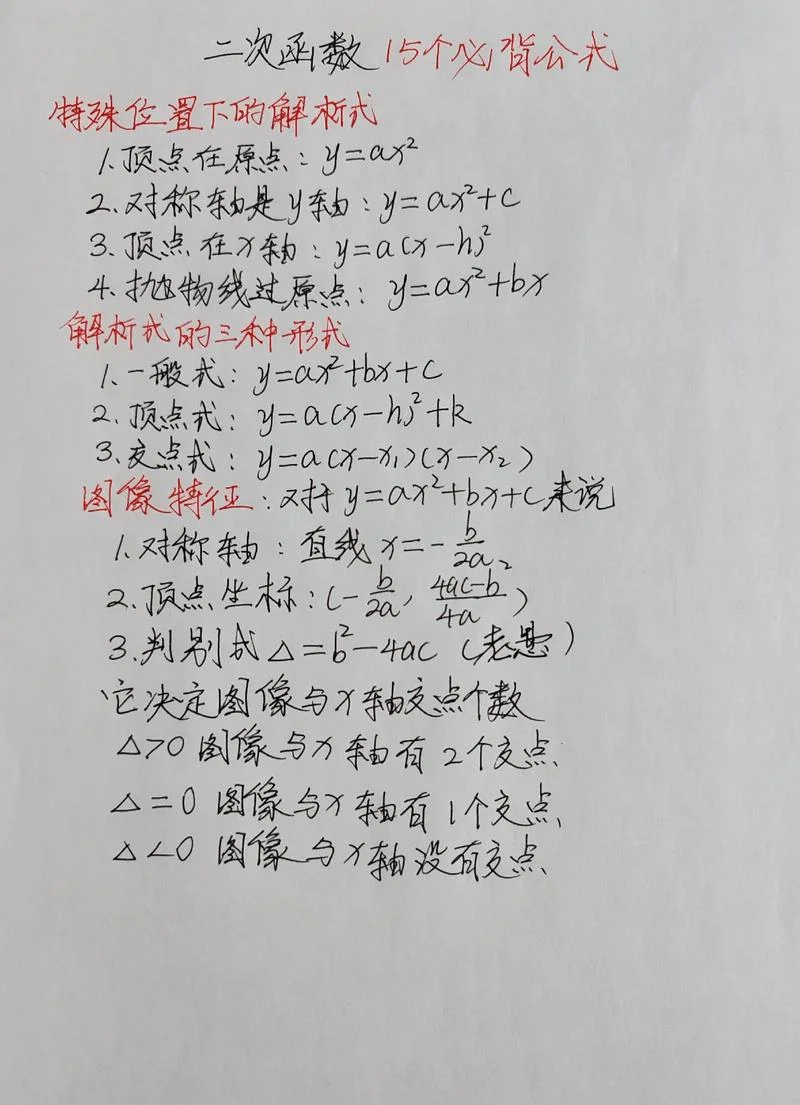 二次函数15个必背公式
特殊位置下的解析式
1.顶点在原点：y=ax²
2.对称轴是y轴：y=ax²+c
3.顶点在x轴：y=a(x-h)²
4.抛物线过原点：y=ax²+bx
解析式的三种形式
1.一般式：y=ax²+bx+c
2.顶点式：y=a(x-h)²+k
3.交点式：y=a(x-x₁)(x-x₂)
图像特征：对于y=ax²+bx+c来说
1.对称轴：直线x=-b/2a
2.顶点坐标：(-b/2a, 4ac-b²/4a)
3.判别式△=b²-4ac（老惹）
它决定图像与x轴交点个数
△>0 图像与x轴有2个交点
△=0 图像与x轴有1个交点
△<0 图像与x轴没有交点